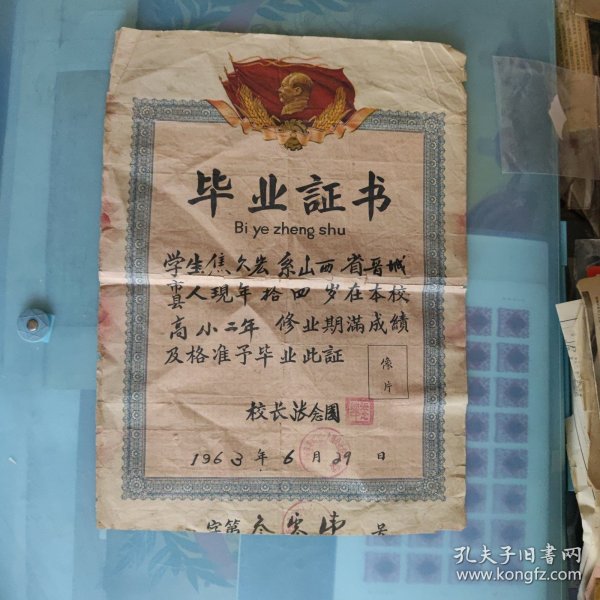 毕业証书
Bi ye zheng shu
学生焦久宏系山西省晋城
市县人現年拾四岁在本校
高小二年 修业期滿成績
及格准予毕业此証
像片
校长张念国
1963年6月29日
字第 号
孔夫子旧书网
www.kongfz.com